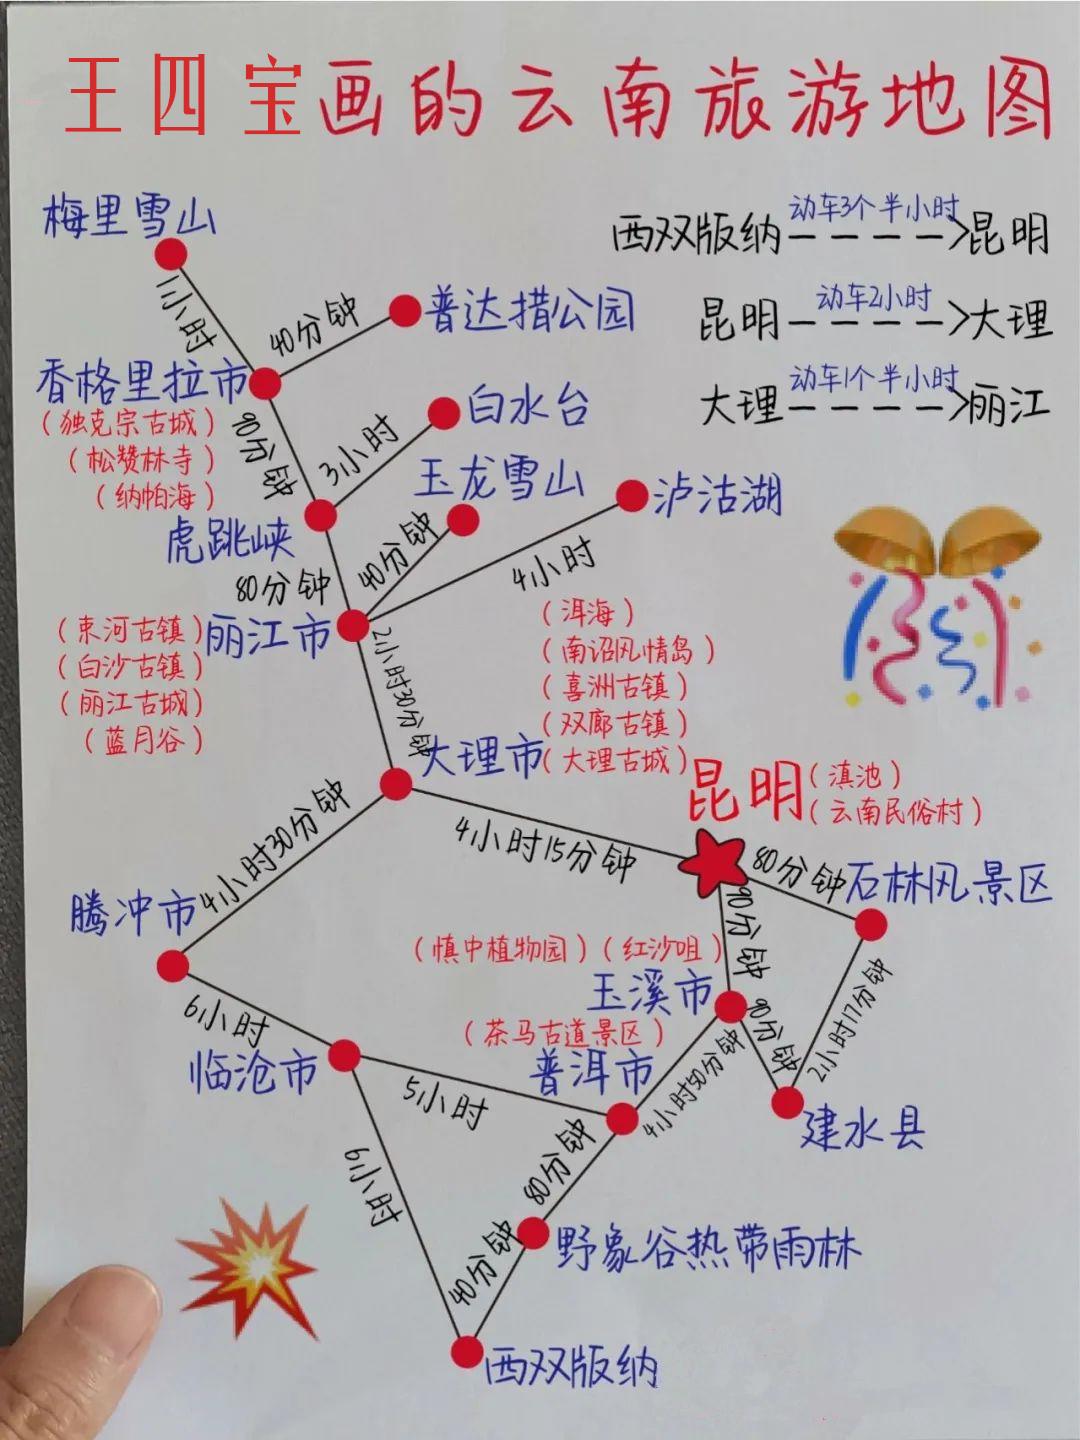 王四宝画的云南旅游地图
梅里雪山
西双版纳 动车3个半小时 昆明
昆明 动车2小时 大理
大理 动车1个半小时 丽江
1小时
40分钟
普达措公园
香格里拉市
(独克宗古城)
(松赞林寺)
(纳帕海)
90分钟
3小时
白水台
玉龙雪山
泸沽湖
虎跳峡
40分钟
4小时
80分钟
(束河古镇)
(白沙古镇)
(丽江古城)
(蓝月谷)
丽江市
2小时30分钟
(洱海)
(南诏风情岛)
(喜洲古镇)
(双廊古镇)
(大理古城)
大理市
昆明
(滇池)
(云南民俗村)
4小时30分钟
4小时15分钟
80分钟
石林风景区
腾冲市
90分钟
(慎中植物园)(红沙咀)
玉溪市
6小时
(茶马古道景区)
90分钟
2小时17分钟
临沧市
普洱市
5小时
4小时50分钟
建水县
6小时
80分钟
野象谷热带雨林
40分钟
西双版纳